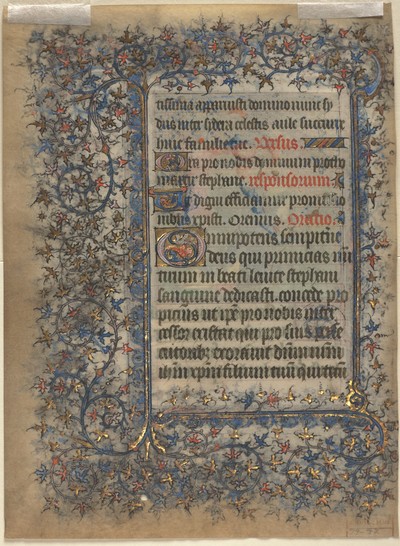 tissima apparuisti domino nunc sy
dus inter sydera celestis aule succurre
huic familie tue. Versus
Ora pro nobis dominum protho
martir stephane. responsorium.
Ut digni efficiamur promissio
nibus cristi. Oremus. Oratio.
Omnipotens sempiterne
deus qui primicias mar
tirum in beati leuite stephani
sanguine dedicasti. concede pro
picius ut ipse pro nobis inter
cessor existat qui pro suis perse
cutoribus exorauit dominum nostrum
ihesum xpistum filium tuum qui tecum